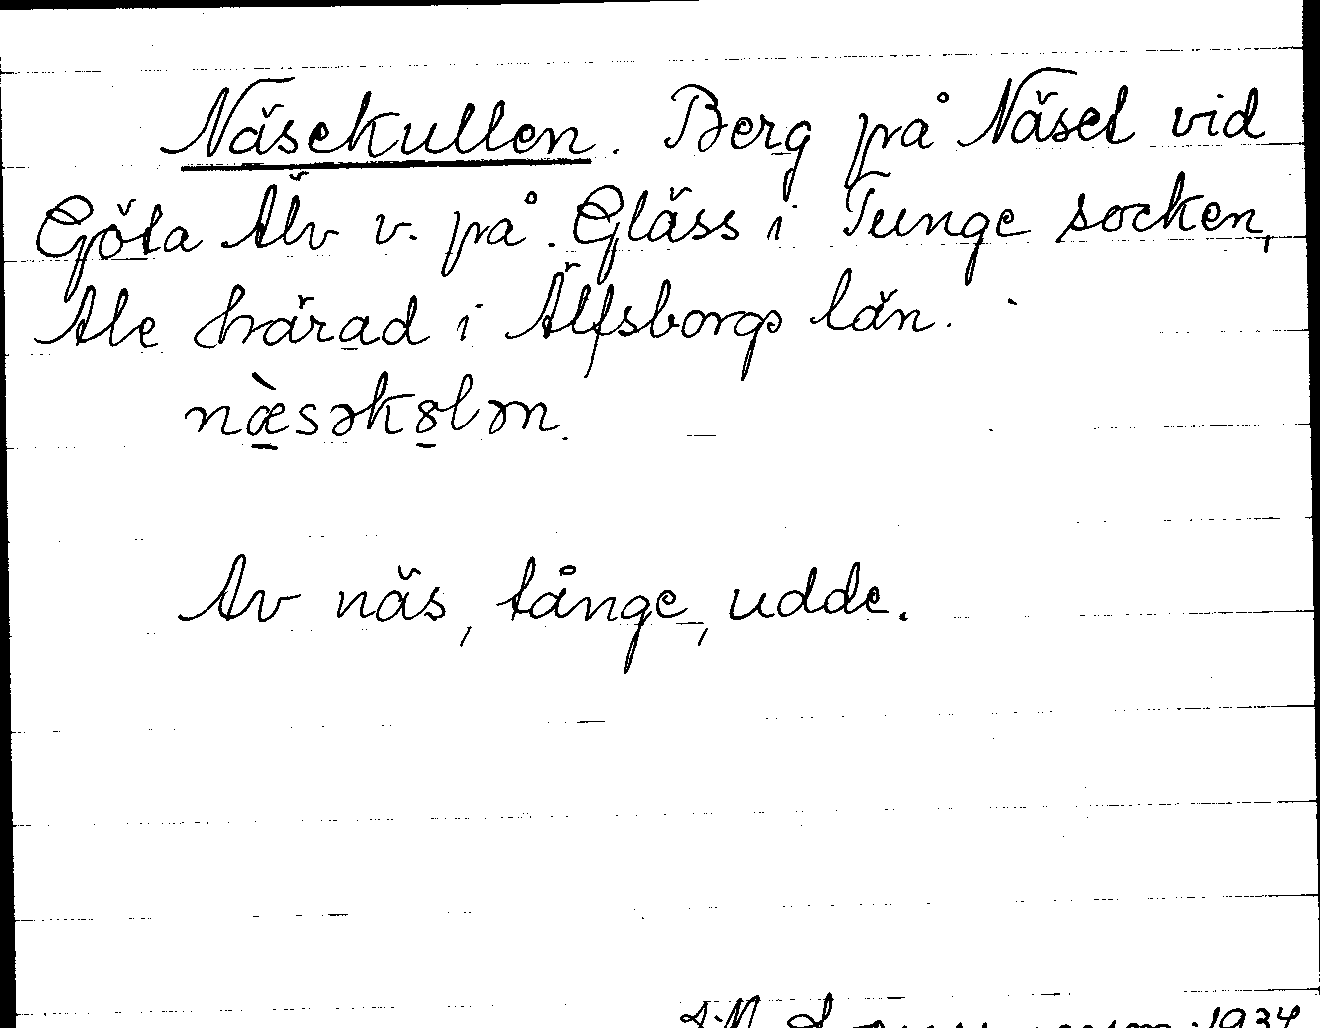 Näsekullen. Berg på Näset vid
Göta Älv v. på. Gläss i Tunge socken,
Ale härad i Älfsborgs län.
næ̀səkȣlən.
Av näs, tånge, udde.
1934